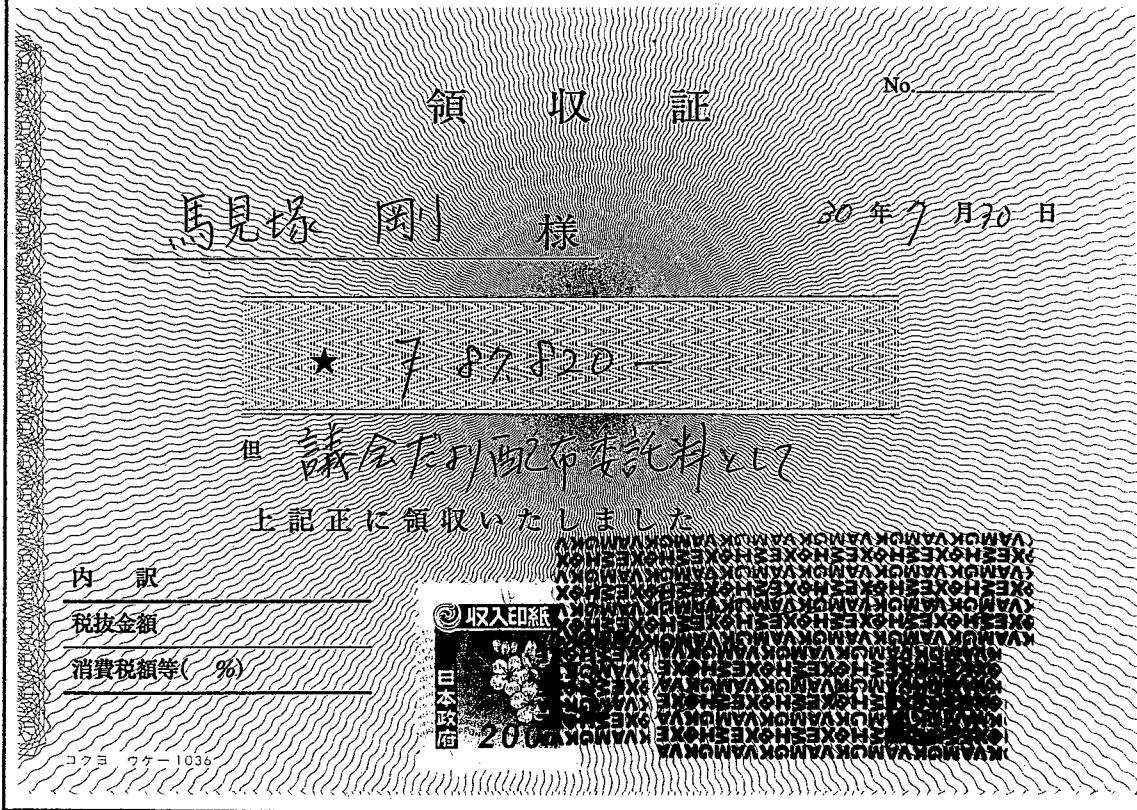 領収証
No.
馬見塚 剛 様
30年7月30日
★ ¥87,820―
但 議会だより配布委託料として
上記正に領収いたしました
内訳
税抜金額
消費税額等( %)
収入印紙
日本政府
200
コクヨ ウケ-1036